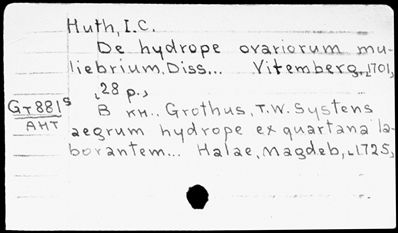 Huth, I.C.
De hydrope ovariorum mu-
liebrium. Diss... Vitemberg., 1701,
28 p.,
В кн.. Grothus, T.W. Systens
aegrum hydrope ex quartana la-
borantem... Halae, Magdeb., 1725,
GT881s
AHT